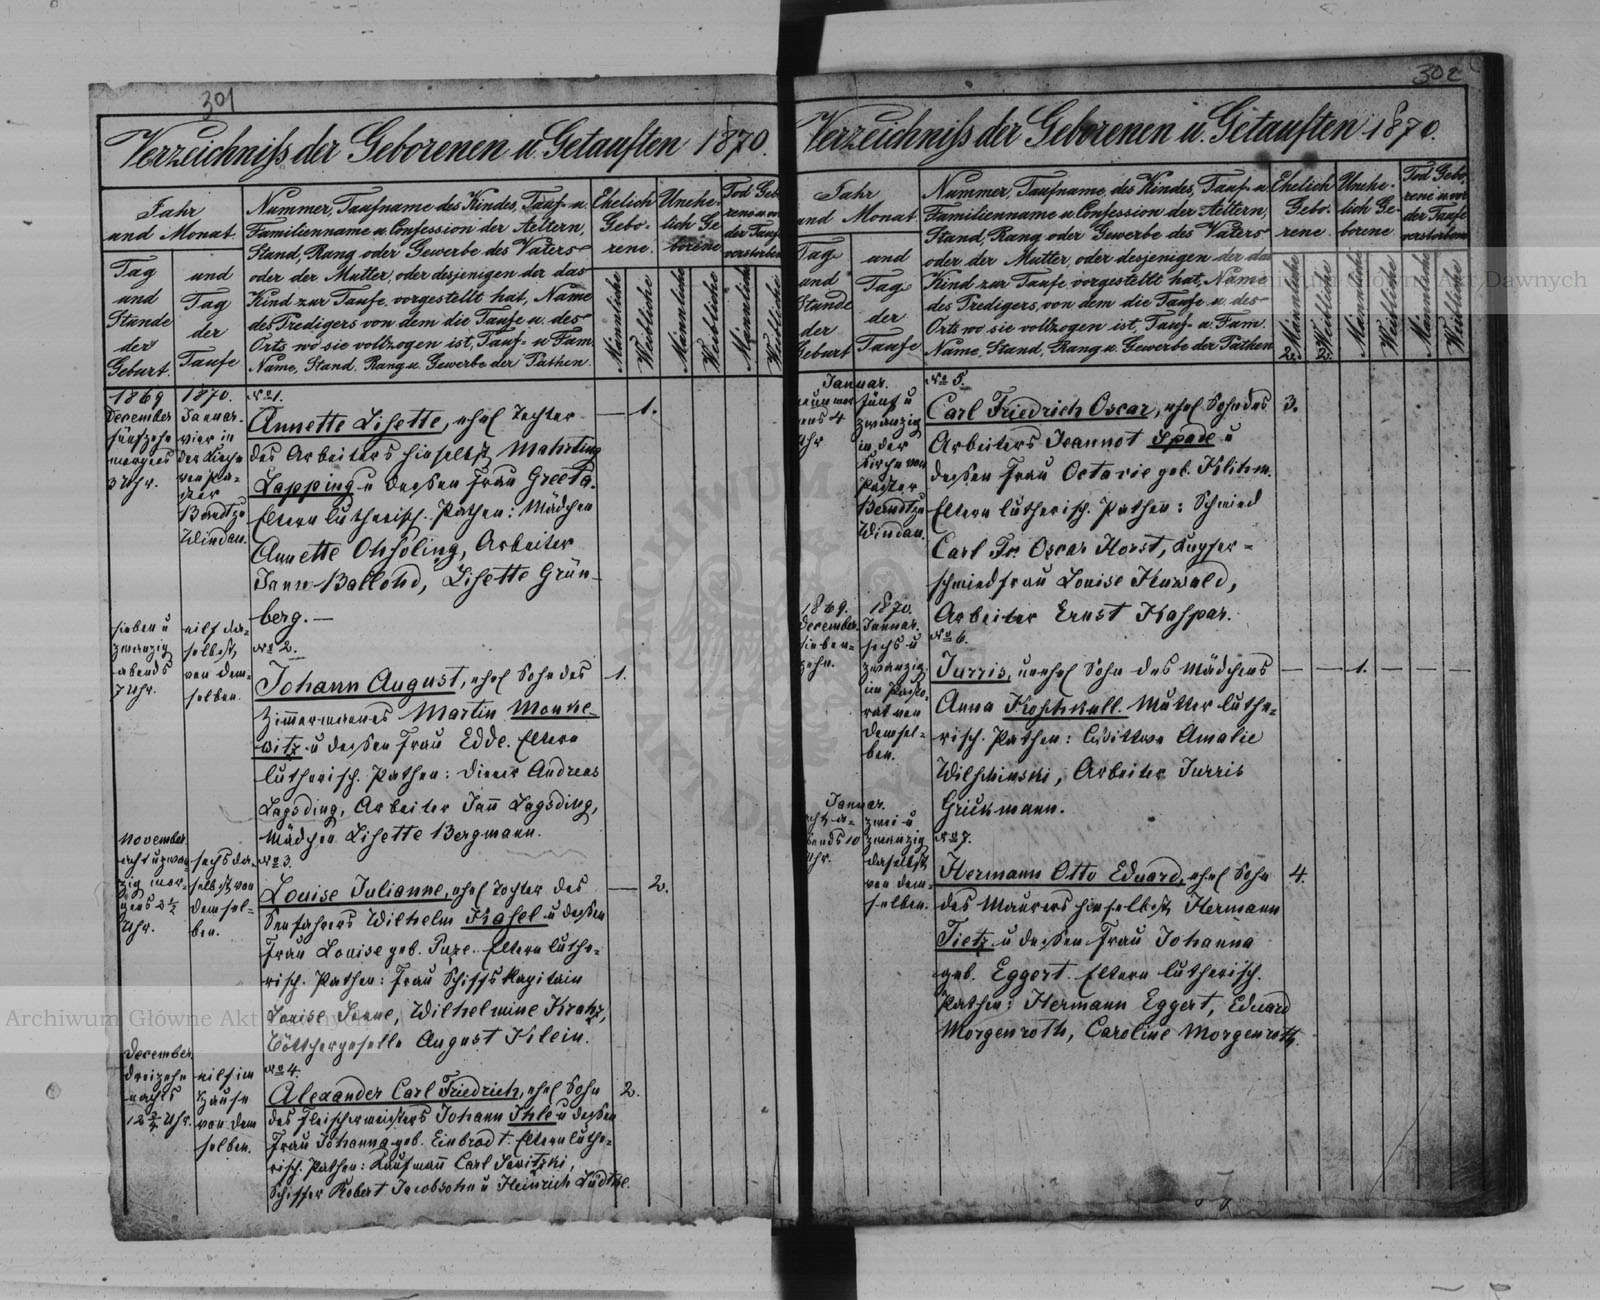 301
Verzeichniß der Geborenen u. Getauften 1870.
Jahr
und Monat.
Tag
und
Stunde
der
Geburt.
und
Tag
der
Taufe
Nummer, Taufname des Kindes, Tauf- u.
Familienname u. Confession der Aeltern,
Stand, Rang oder Gewerbe des Vaters
oder der Mutter, oder desjenigen der das
Kind zur Taufe vorgestellt hat, Name
des Predigers von dem die Taufe u. des
Orts wo sie vollzogen ist, Tauf- u. Fam.
Name, Stand, Rang u. Gewerbe der Pathen.
Ehelich
Gebo-
rene.
Unehe-
lich Ge
borene
Tod Geb
rene u. vor
der Taufe
verstorben
Männliche
Weibliche
Männliche
Weibliche
Männliche
Weibliche
1869
December
fünfzehn
morgens
3 Uhr.
1870.
Januar.
vier in
der Kirche
von Pa-
stor
Berndt zu
Windau.
No 1.
Annette Lisette, ehel Tochter
des Arbeiters hieselbst, Mahrting
Lapping u dessen Frau Greeta.
Eltern lutherisch. Pathen: Mädchen
Annette Ohsoling, Arbeiter
Jann Ballohd, Lisette Grün-
berg. —
— 1.
sieben u
zwanzig
abends
7 Uhr.
eilf da-
selbst,
von dem-
selben.
No 2.
Johann August, ehel Sohn des
Zimmermannes Martin Monke-
witz u dessen Frau Edde. Eltern
lutherisch. Pathen: Diener Andreas
Lagsding, Arbeiter Jann Lagsding,
Mädchen Lisette Bergmann.
1.
November.
acht u zwan
zig mor-
gens 2½
Uhr.
sechs da-
selbst, von
demsel-
ben.
No 3.
Louise Julianne, ehel Tochter des
Seefahrers Wilhelm Kasel u dessen
Frau Louise geb. Puze. Eltern luthe-
risch. Pathen: Frau Schiffskapitain
Louise Sonne, Wilhelmine Kratz,
Böttchergeselle August Klein.
— 2.
December.
dreizehn
nachts
eilf im
Hause
von dem
selben.
No 4.
Alexander Carl Friedrich, ehel Sohn
des Fleischermeisters Johann Ihle u dessen
Frau Johanna geb. Einbrodt. Eltern luthe-
risch. Pathen: Kaufmann Carl Sawitzki,
Schiffer Robert Jacobsohn u Heinrich Lüdtke.
2.
302
Verzeichniß der Geborenen u. Getauften 1870.
Jahr
und Monat.
Tag
und
Stunde
der
Geburt
und
Tag
der
Taufe
Nummer, Taufname des Kindes, Tauf- u.
Familienname u. Confession der Aeltern,
Stand, Rang oder Gewerbe des Vaters
oder der Mutter, oder desjenigen der das
Kind zur Taufe vorgestellt hat, Name
des Predigers, von dem die Taufe u. des
Orts wo sie vollzogen ist, Tauf- u. Fam.
Name, Stand, Rang u. Gewerbe der Pathen
Ehelich
Gebo-
rene.
Unehe-
lich Ge-
borene
Tod Gebo
rene u. vor
der Taufe
verstorbene
Männliche
Weibliche
Männliche
Weibliche
Männliche
Weibliche
2. 2.
Januar.
4
Uhr
fünf u
zwanzig
in der
Kirche von
Pastor
Berndt zu
Windau.
No 5.
Carl Friedrich Oscar, ehel Sohn des
Arbeiters Jeannot Spade u
dessen Frau Octavie geb. Klihm.
Eltern lutherisch. Pathen: Schmied
Carl Fr. Oscar Horst, Kupfer-
schmiedfrau Louise Kuwald,
Arbeiter Ernst Kaspar.
3.
1869.
December.
sieben-
zehn.
1870.
Januar.
sechs u
zwanzig
im Pasto-
rat von
demsel-
ben.
No 6.
Jurris, unehel Sohn des Mädchens
Anna Koschkull. Mutter luthe-
risch. Pathen: Wittwe Amalie
Wilschinski, Arbeiter Jurris
Grickmann.
— — 1. — — —
Januar.
acht a-
bends 10
Uhr.
zwei u
zwanzig
daselbst,
von dem-
selben.
No 7.
Hermann Otto Eduard, ehel Sohn
des Maurers hieselbst, Hermann
Tietz u dessen Frau Johanna
geb. Eggert. Eltern lutherisch.
Pathen: Hermann Eggert, Eduard
Morgenroth, Caroline Morgenroth.
4.
Archiwum Główne Akt Dawnych
Archiwum Główne Akt Dawnych